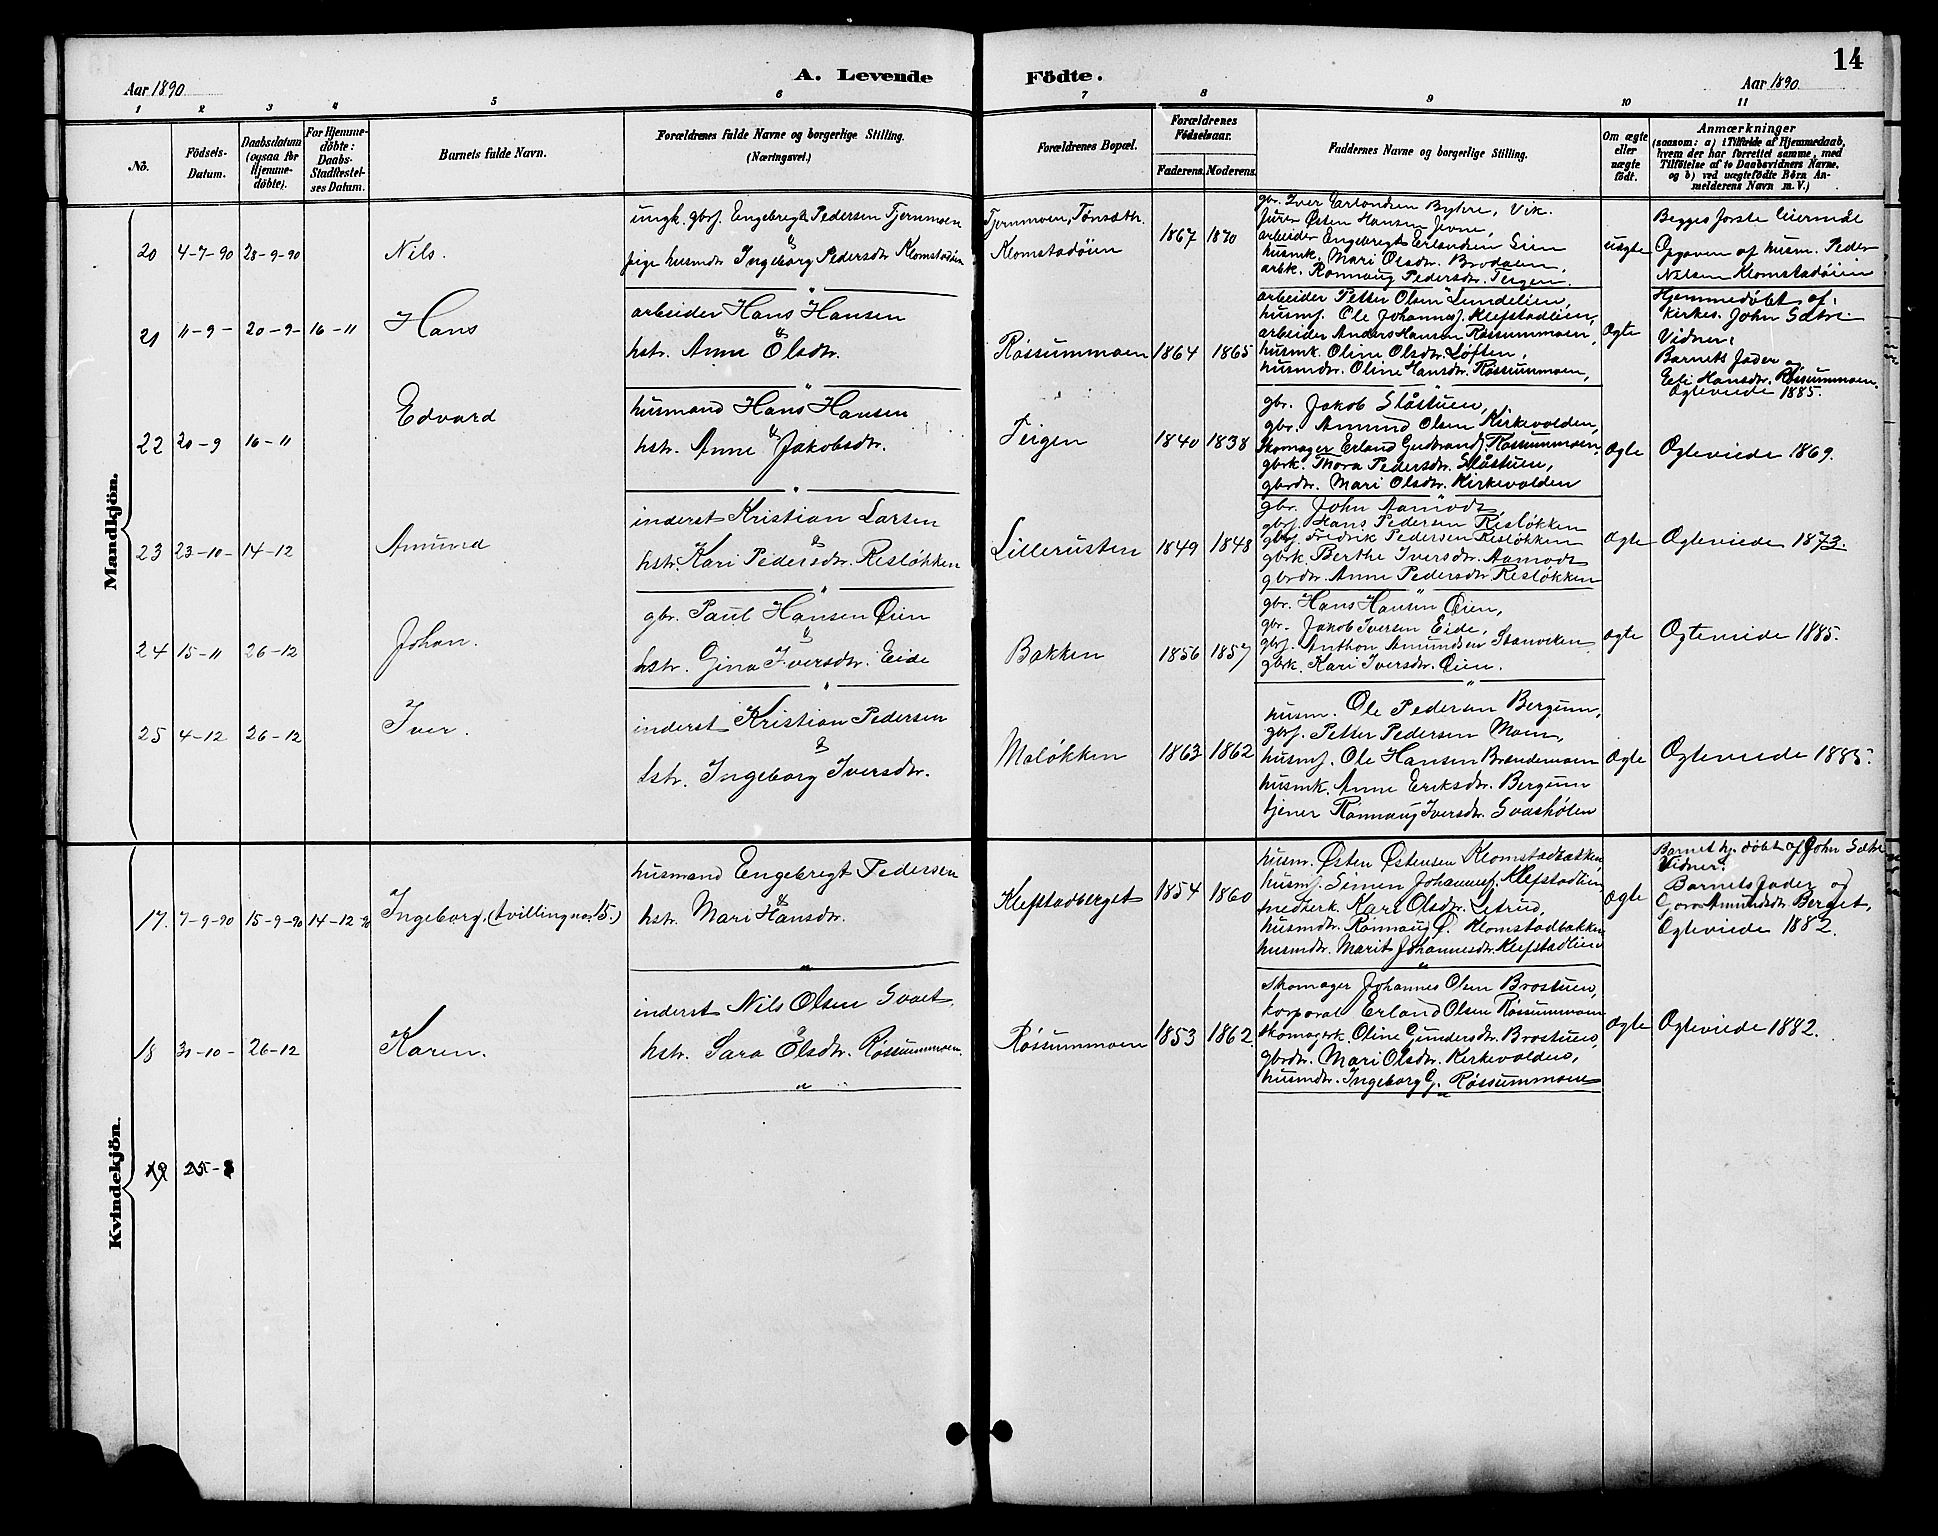 14
A. Levende Födte.
Aar 1890
Aar 1890
1 2 3 4 5 6 7 8 9 10 11
No.
Födsels-Datum.
Daabsdatum (ogsaa for Hjemmedöbte).
For Hjemmedöbte: Daabs-Stadfestelses Datum.
Barnets fulde Navn.
Forældrenes fulde Navne og borgerlige Stilling. (Næringsvei.)
Forældrenes Bopæl.
Forældrenes Födselsaar.
Faderens. Moderens.
Faddernes Navne og borgerlige Stilling.
Om ægte eller uægte födt.
Anmærkninger
(saasom: a) i Tilfælde af Hjemmedaab, hvem der har forrettet samme, med Tilföielse af to Daabsvidners Navne, og b) ved uægtefödte Börn Anmelderens Navn m. V.)
Mandkjön.
20 4-7-90 28-9-90 Nils.
ungk. gbrs. Engebregt Pedersen Tjernmoen
&
pige husmdtr Ingeborg Pedersdtr Klomstadøien
Tjernmoen, Tønseth.
Klomstadøien
1867 1870
gbr. Iver Erlandsen Byhre, Vik.
furer Østen Hansen Jevne,
arbeider Engebregt Erlandsen Lien
husmk. Mari Olsdtr. Brodalen,
arbk. Rønnaug Pedersdtr. Teigen.
uægte
Begges første Leiermål
Opgaven af husm. Peder
Nilsen Klomstadøien
21 11-9- 20-9- 16-11 Hans
arbeider Hans Hansen
&
hstr. Anne Olsdtr.
Røssummoen 1864 1865
arbeider Petter Olsen Lundelien,
husmf. Ole Johannesf. Klefstadlien,
arbeider Anders Hansen Røssummoen,
husmk. Oline Olsdtr. Løften,
husmdtr. Oline Hansdtr. Røssummoen,
Ægte
Hjemmedøbt af:
kirkes. John Sætre
Vidner:
Barnets fader og
Eli Hansdtr. Røssummoen.
Ægteviede 1885.
22 20-9 16-11 Edvard
husmand Hans Hansen
&
hstr. Anne Jakobsdtr.
Teigen 1840 1838
gbr. Jakob Slåstuen,
gbr. Amund Olsen Kirkevolden,
Skomager Erland Gudbrandf. Røssummoen
gbrk. Thora Pedersdtr. Slåstuen,
gbrdtr. Mari Olsdtr. Kirkevolden
Ægte Ægteviede 1869.
23 23-10- 14-12 Amund
inderst Kristian Larsen
&
hstr. Kari Pedersdtr. Risløkken
Lillerusten 1849 1848
gbr. John Aamodt,
gbrf. Hans Pedersen Risløkken
gbrf. Fredrik Pedersen Risløkken
gbrk. Berthe Iversdtr. Aamodt
gbrdtr. Anne Pedersdtr Risløkken
Ægte Ægteviede 1873.
24 15-11 26-12 Johan.
gbr. Paul Hansen Øien
&
hstr. Gina Iversdtr. Eide
Bakken 1856 1857
gbr. Hans Hansen Øien,
gbr. Jakob Iversen Eide,
gbrf. Anthon Amundsen Stanviken
gbrk. Kari Iversdtr. Øien.
ægte Ægteviede 1885.
25 4-12 26-12 Iver.
inderst Kristian Pedersen
&
hstr. Ingeborg Iversdtr.
Moløkken 1863 1862
husm. Ole Pedersen Bergum,
gbrf. Petter Pedersen Moen,
husmf. Ole Hansen Brendemoen
husmk. Anne Eriksdtr. Bergum
tjener Rønnaug Iversdtr. Svashølen
Ægte Ægteviede 1885.
Kvindekjön.
17. 7-9-90 15-9-90 14-12 90 Ingeborg. (tvilling no. 15.)
husmand Engebregt Pedersen
&
hstr. Mari Hansdtr.
Klefstadberget 1854 1860
husm. Østen Østensen Klomstadbakken
husmf. Simen Johannesf. Klefstadlien
Kari Olsdtr. Letrud,
husmdtr. Rønnaug Ø. Klomstadbakken
husmdtr. Marit Johannesdtr. Klefstadlien
Ægte
Barnet hj. døbt af John Sætre
Vidner:
Barnets fader og
Goro Amundsdtr. Berget,
Ægteviede 1882.
18 31-10- 26-12 Karen.
inderst Nils Olsen Svaet,
&
hstr. Sara Olsdtr. Røssummoen.
Røssummoen 1853 1862
Skomager Johannes Olsen Brostuen,
korporal Erland Olsen Røssummoen
skomagerk. Oline Gundersdtr. Brostuen,
gbrdtr. Mari Olsdtr. Kirkevolden,
husmdtr. Ingeborg G. Røssummoen
Ægte Ægteviede 1882.
19 25-8